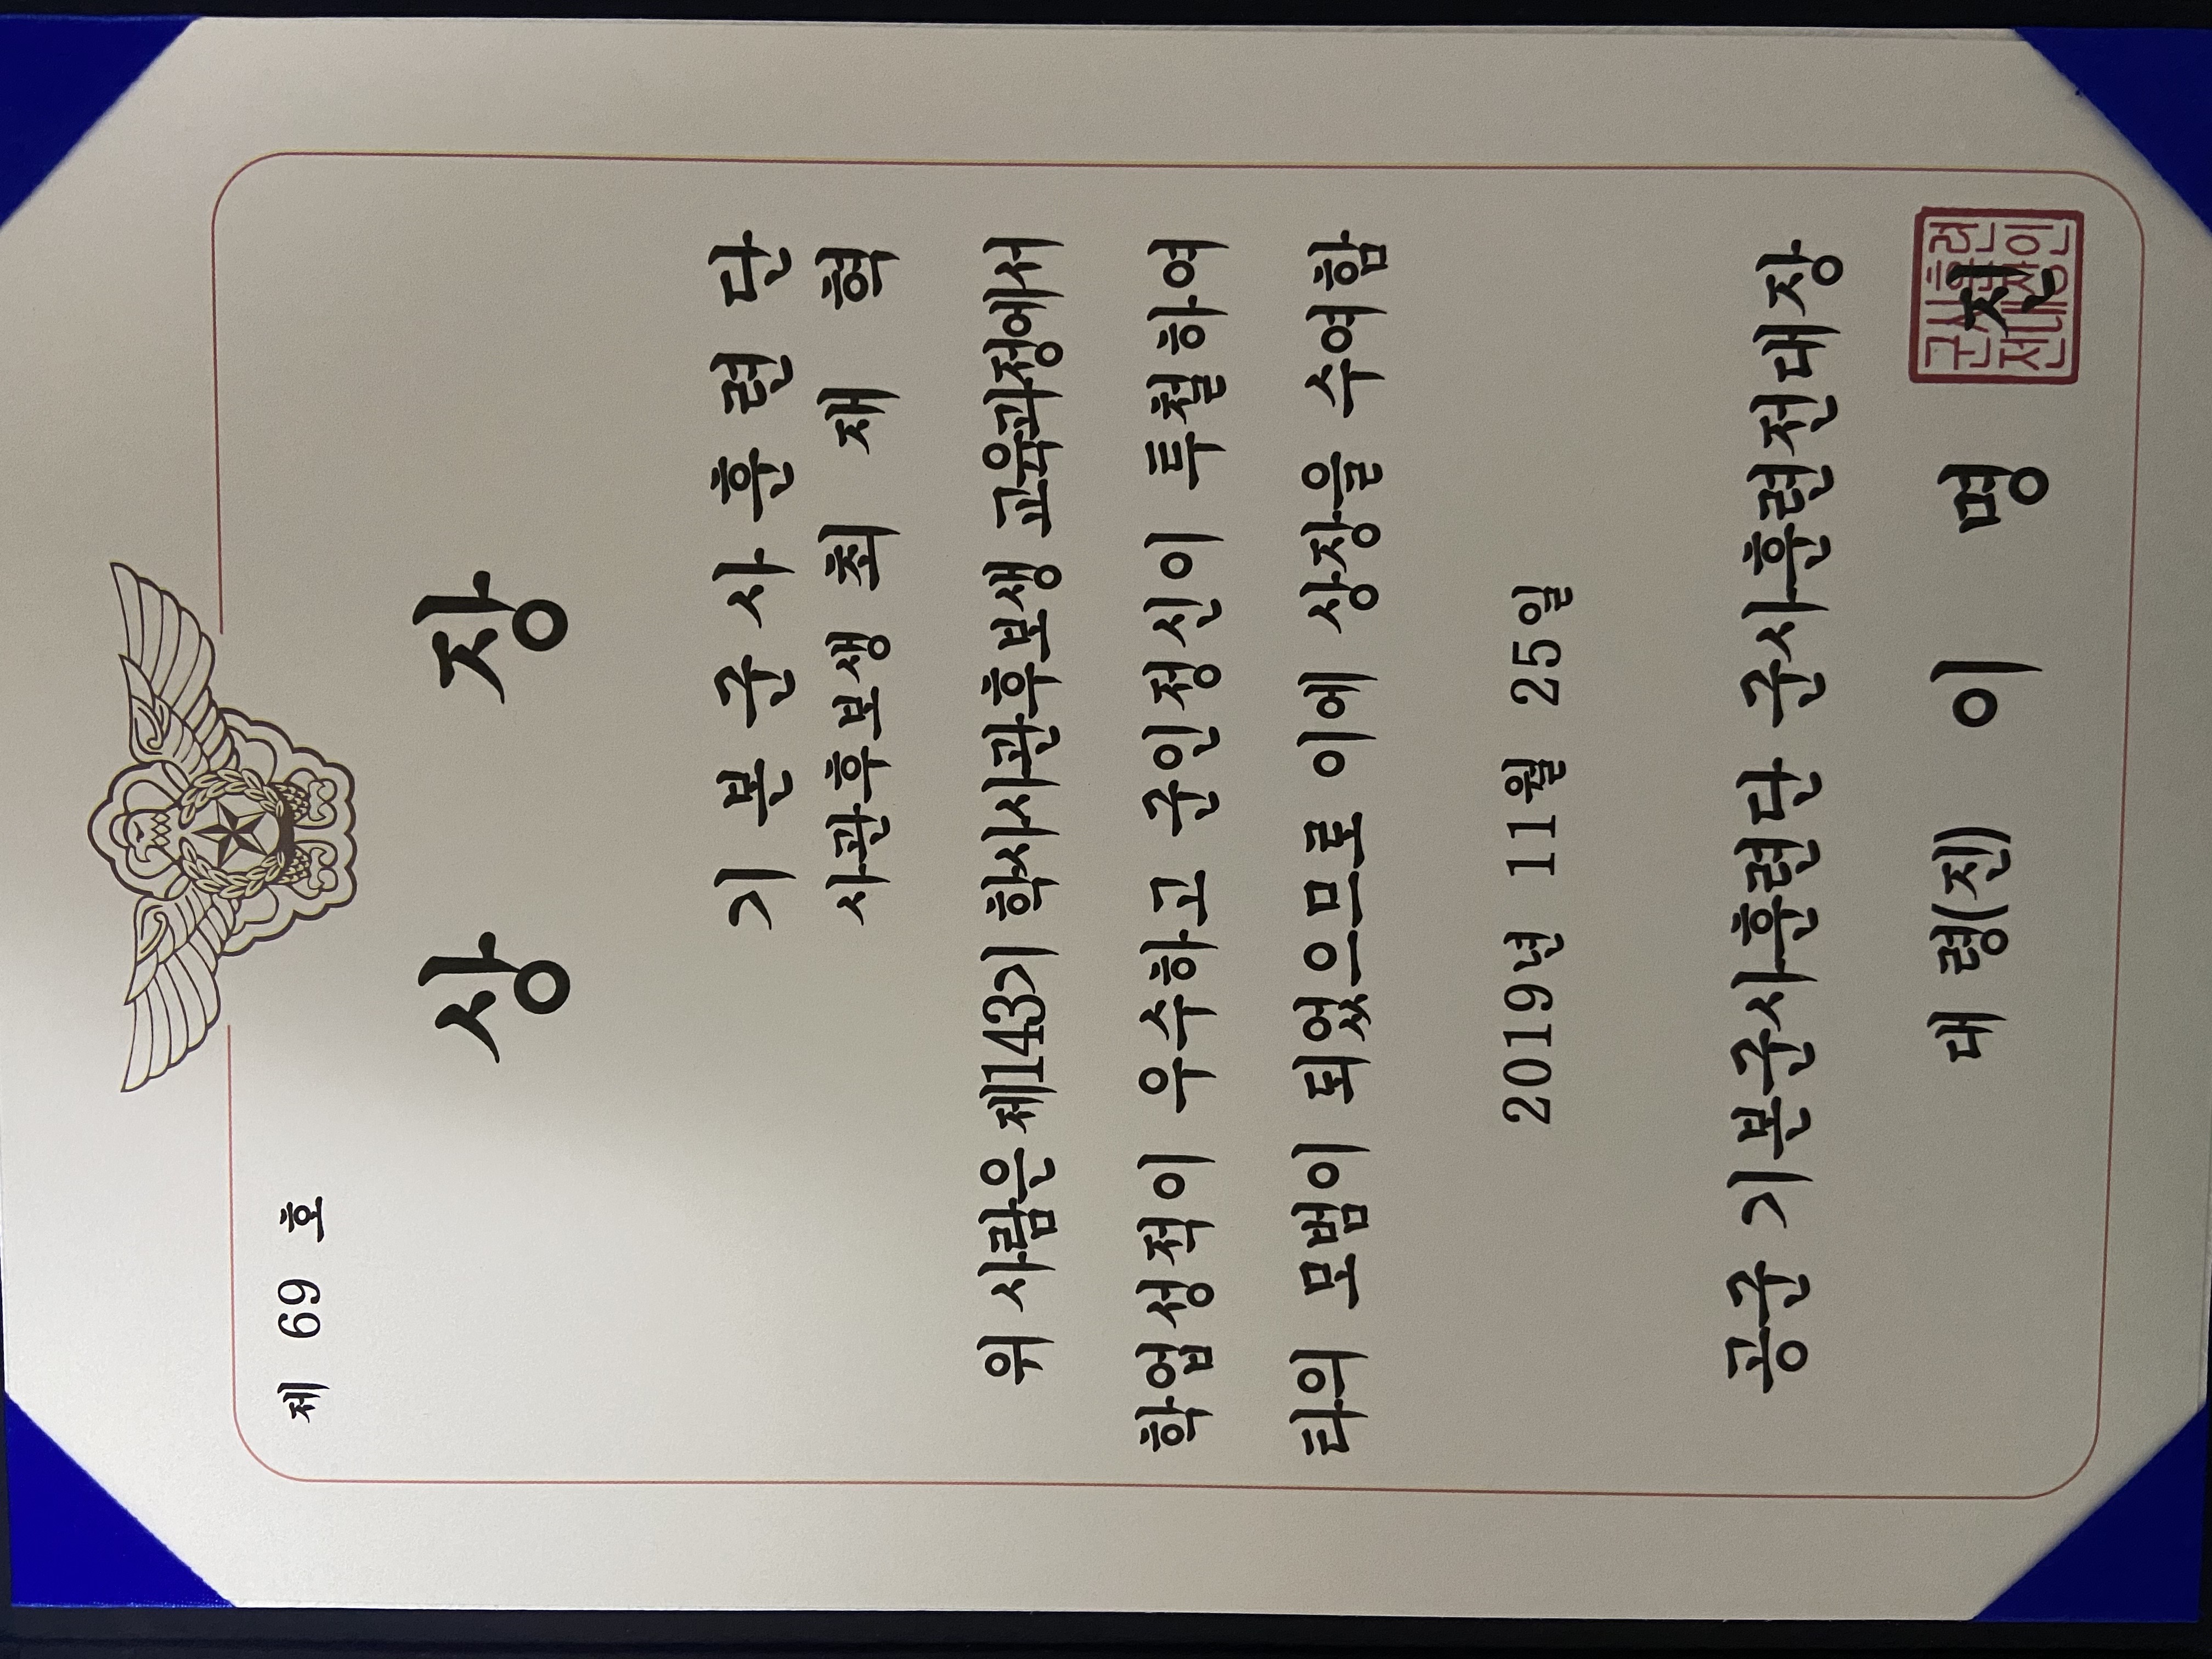 제 69 호
상 장
기본군사훈련단
사관후보생 최 재 혁
위 사람은 제143기 학사사관후보생 교육과정에서
학업성적이 우수하고 군인정신이 투철하여
타의 모범이 되었으므로 이에 상장을 수여함
2019년 11월 25일
공군 기본군사훈련단 군사훈련전대장
대령(진) 이 명 진
군사훈련
전대장인